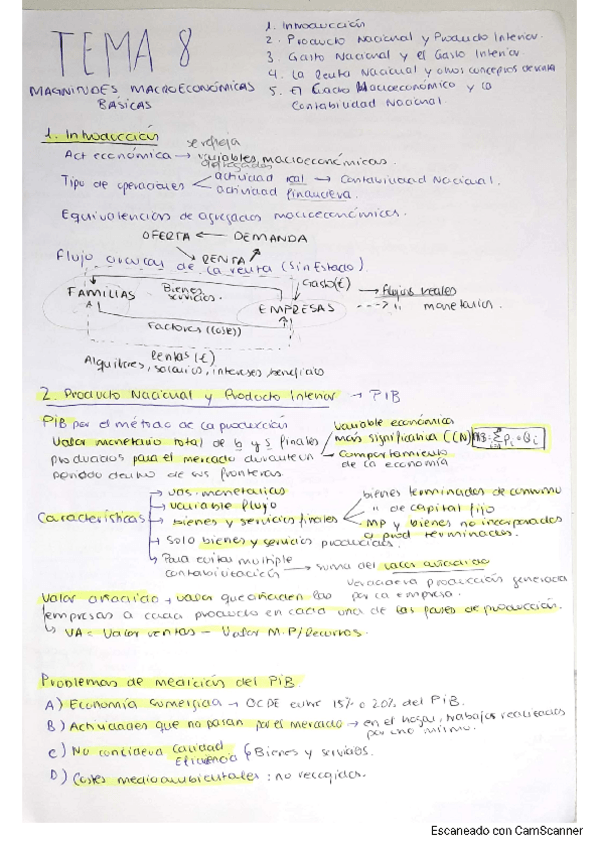 TEMA 8
MAGNITUDES MACROECONÓMICAS
BÁSICAS
1. Introducción
2. Producto Nacional y Producto Interior.
3. Gasto Nacional y el Gasto Interior.
4. La Renta Nacional y otros conceptos de renta
5. El Gasto Macroeconómico y la
Contabilidad Nacional.
1. Introducción
se refleja
Act económica → variables macroeconómicas.
agregados
Tipo de operaciones
actividad real → Contabilidad Nacional.
actividad financiera.
Equivalencias de agregados macroeconómicos.
OFERTA ← DEMANDA
RENTA
Flujo circular de la renta (Sin Estado)
Gasto(€)
FAMILIAS
Bienes
servicios.
EMPRESAS
→ Flujos reales
---> " monetarios
Factores (Coste)
Rentas (€)
Alquileres, salarios, intereses, beneficio
2. Producto Nacional y Producto Interior → PIB
PIB por el método de la producción
Valor monetario total de b y s finales
producidos para el mercado durante un
periodo dentro de sus fronteras.
Variable económica
más significativa (CN)
PIB=Σ Pi · Qi
Comportamiento
de la economía
Características
→ uds. monetarias
→ variable flujo
→ bienes y servicios finales
bienes terminados de consumo
" de capital fijo
MP y bienes no incorporados
a prod terminados.
→ Solo bienes y servicios producidos.
→ Para evitar multiple
contabilización → suma del valor añadido
verdadera producción generada
por la empresa.
Valor añadido → valor que añaden las
empresas a cada producto en cada una de las fases de producción.
↳ VA = Valor ventas - Valor M.P/Recursos.
Problemas de medición del PIB
A) Economía sumergida → OCDE entre 15% o 20% del PIB.
B) Actividades que no pasan por el mercado → en el hogar, trabajos realizados
por uno mismo.
C) No considera Calidad
Eficiencia
Bienes y servicios.
D) Costes medioambientales: no recogidos.
Escaneado con CamScanner